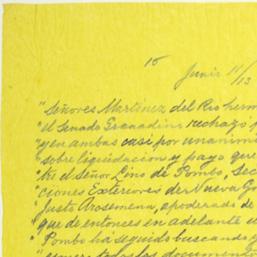 15
Junio 11/13
"Señores Martinez del Rio herm
"el Senado Granadino rechazó p
"y en ambas casi por unanimi
"sobre liquidacion y pago que
"tre el Señor Lino de Pombo, Sec
"ciones Exteriores de Nueva G
"Justo Arosemena, apoderado de
"que de entonces en adelante
"Pombo ha seguido buscando y
todos los documento